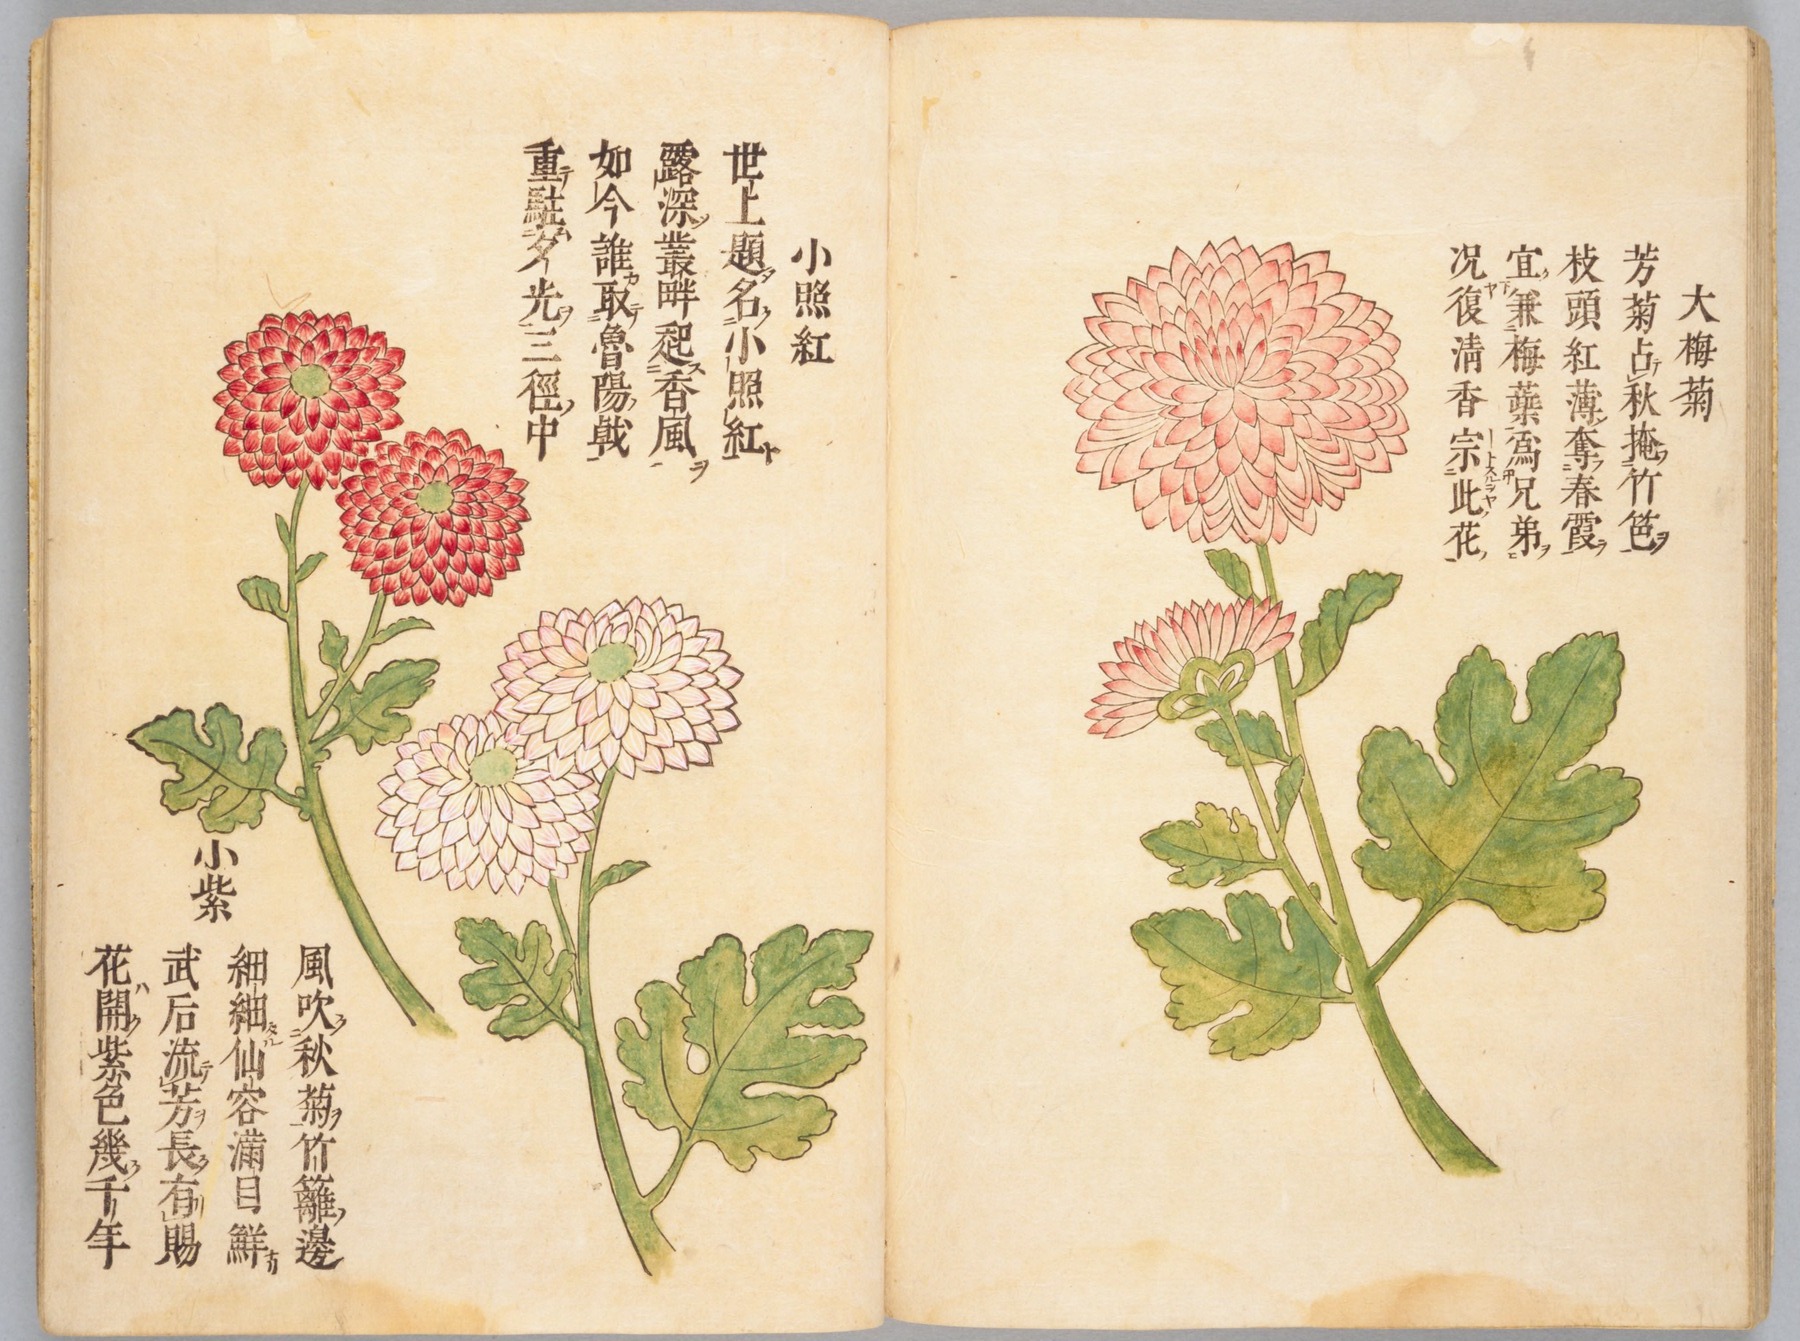 大梅菊
芳菊占秋掩竹笆
枝頭紅薄奪春霞
宜兼梅蘂為兄弟
况復清香宗此花
小照紅
世上題名小照紅
露深叢畔起香風
如今誰取魯陽戟
重駐夕光三徑中
小紫
風吹秋菊竹籬邊
細細仙容滿目鮮
武后流芳長有賜
花開紫色幾千年